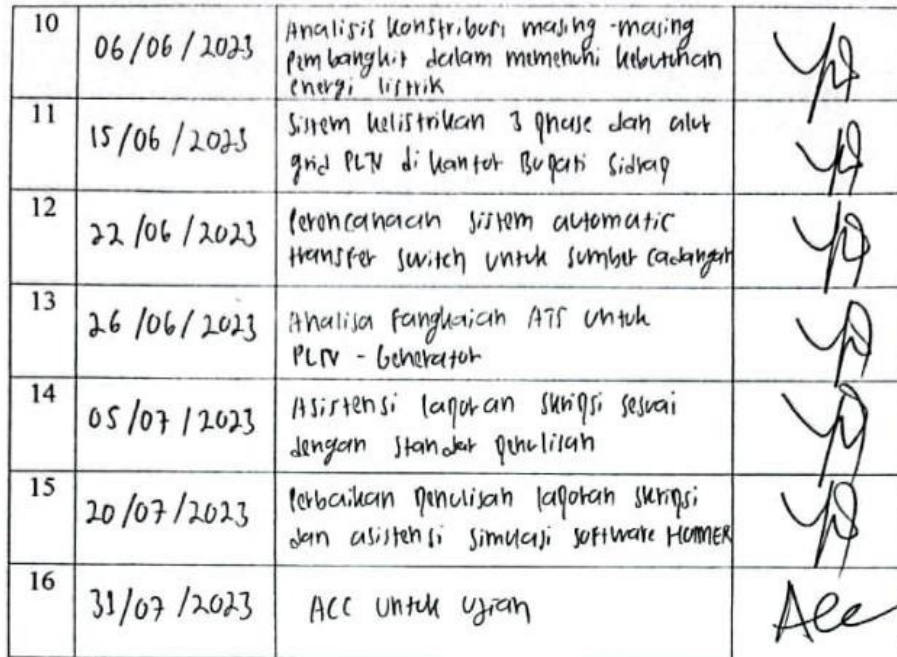 10
06/06/2023
Analisis konstribusi masing-masing
pembangkit dalam memenuhi kebutuhan
energi listrik
11
15/06/2023
Sistem kelistrikan 3 phase dan alur
grid PLN di kantor Bupati Sidrap
12
22/06/2023
Perencanaan sistem automatic
transfer switch untuk sumber cadangan
13
26/06/2023
Analisa rangkaian ATS untuk
PLN - Generator
14
05/07/2023
Asistensi laporan skripsi sesuai
dengan standar penulisan
15
20/07/2023
Perbaikan penulisan laporan skripsi
dan asistensi simulasi software HOMER
16
31/07/2023
ACC untuk ujian
Acc